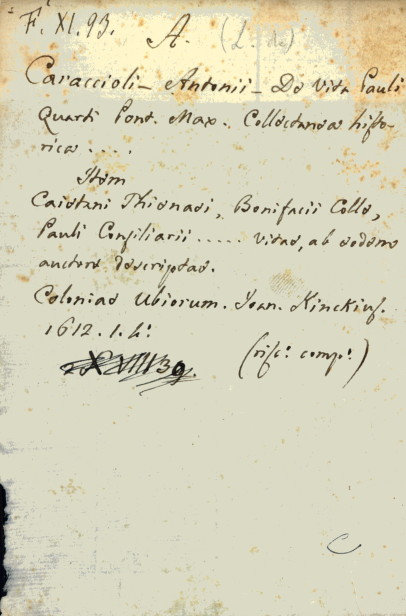 F. XI. 93.
A. (L. de)
Caraccioli - Antonii - De Vita Pauli
Quarti Pont. Max. Collectanea histo-
rica ....
Item
Caietani Thienaei, Bonifacii Colle,
Pauli Consiliarii ..... vitae, ab eodem
auctore descriptae.
Coloniae Ubiorum. Joan. Kinckius.
1612. 1. 4:
(risc: comp:)
XVIII 39.
C